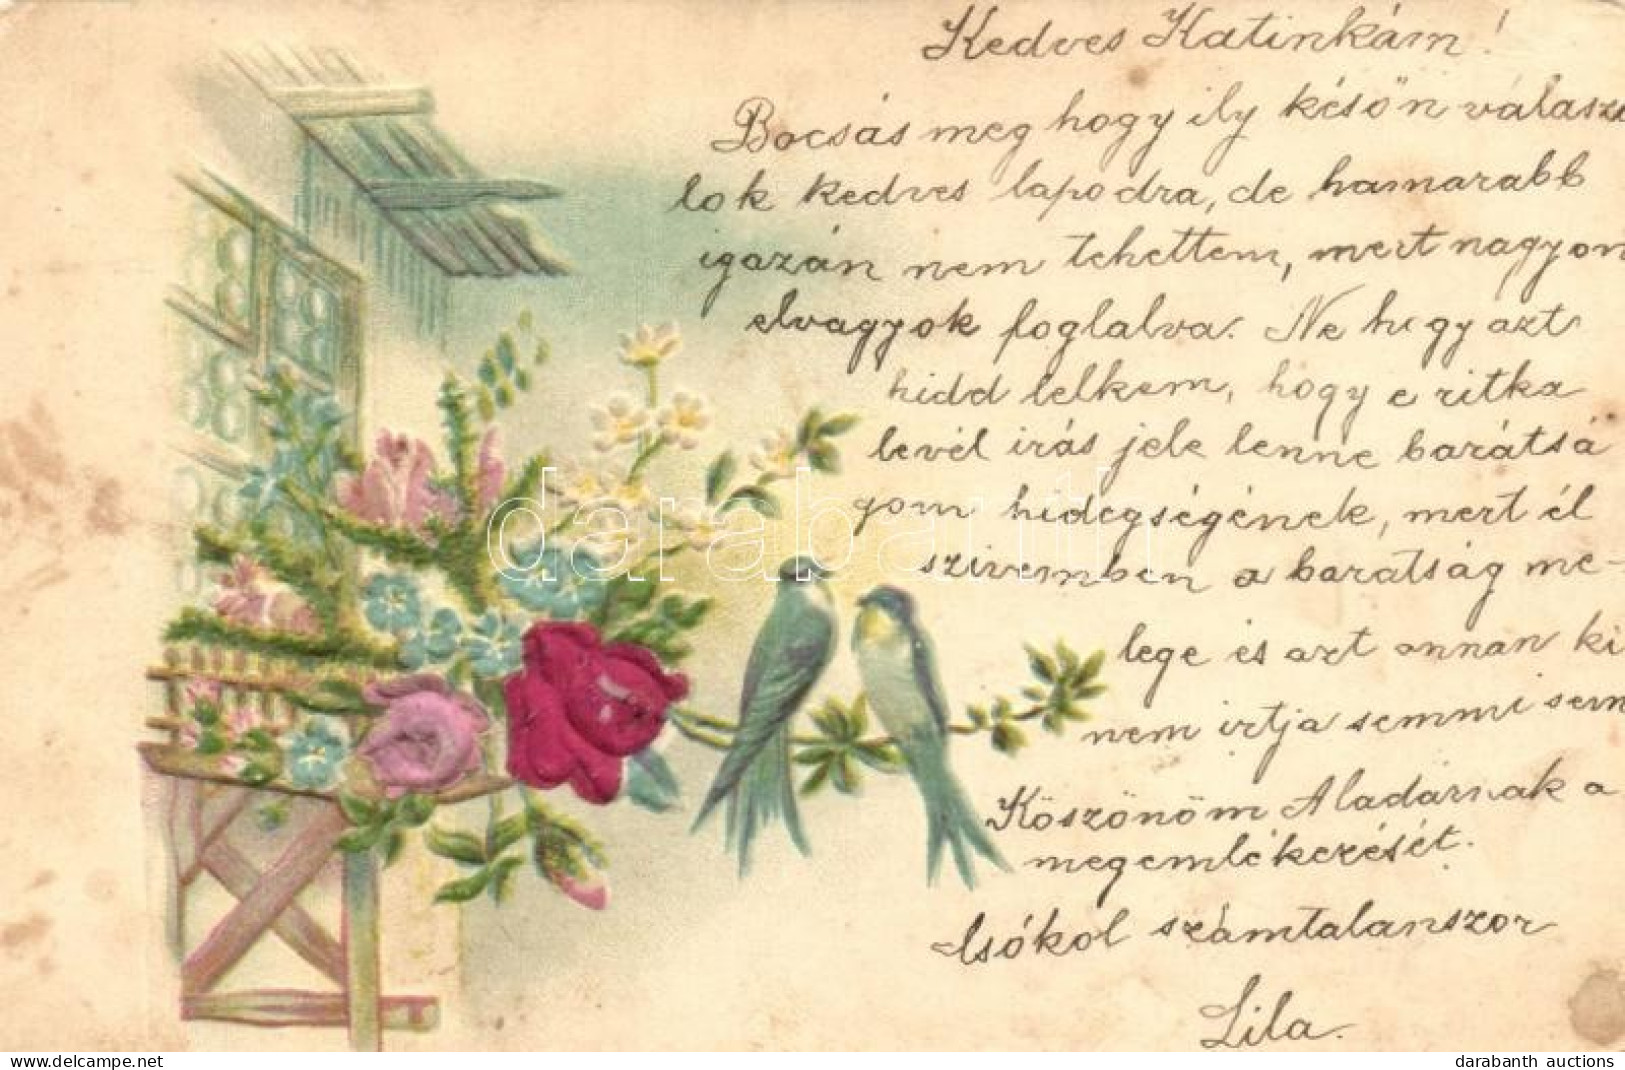 Kedves Katinkám!
Bocsás meg hogy ily későn válasz
lok kedves lapodra, de hamarabb
igazán nem tehettem, mert nagyon
elvagyok foglalva. Ne hogy azt
hidd lelkem, hogy e ritka
levél irás jele lenne barátsá
gom hidegségének, mert él
szivemben a barátság me-
lege és azt onnan ki
nem irtja semmi sem
Köszönöm Aladárnak a
megemlékezését.
Csókol számtalanszor
Lila.
darabanth
delcampe.net
darabanth auctions